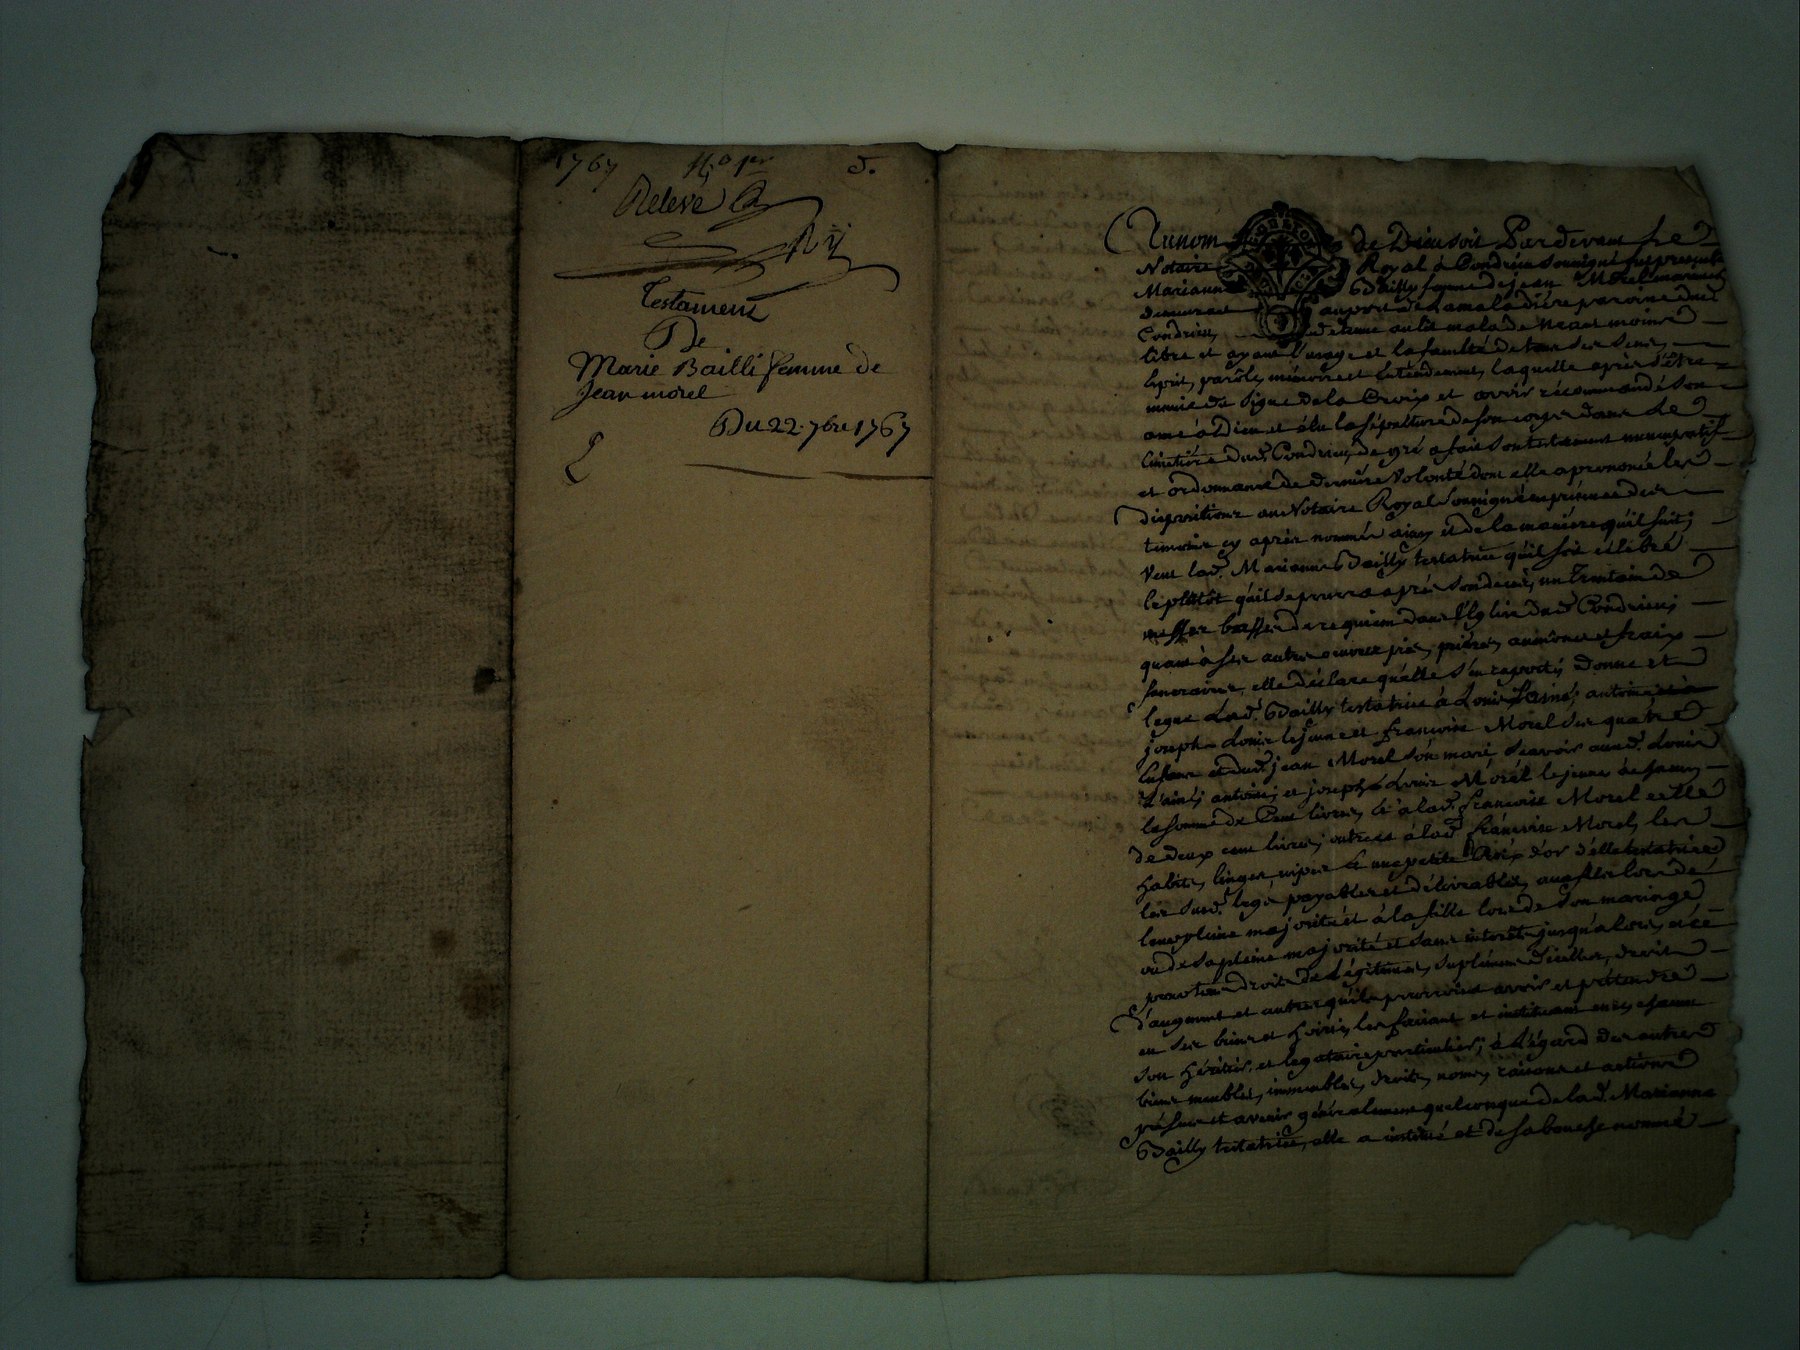 1767
5.
Relevé
Testament
De
Marie Bailli femme de
Jean morel
Du 22. 7bre 1767
Au nom de Dieu soit Pardevant Le
Notaire Royal à Condrieu soussigné fut presente
Marianne Bailly femme de jean Morel marinier
demeurant au port de la maladiere parroisse dud.
Condrieu, detenue au lit malade neant moins
libre et ayant l'usage et la faculté de tous ses sens,
esprit, parôle, mémoire et entendement, laquelle après s'être
munie du signe de la Croix et avoir récommandé son
ame à Dieu et élu la sépulture de son corps dans Le
Cimetière dud. Condrieu, de gré a fait son testament nuncupatif
et ordonnance de dernière Volonté dont elle a prononcé les
dispositions au Notaire Royal soussigné en présence des
temoins cy après nommés ainsy et de la manière qu'il suit;
Veut lad. Marianne Bailly testatrice qu'il soit célébré
le plûtôt qu'il se pourra après son decès, un Trentain de
messes basses de requiem dans l'Eglise dud. Condrieu;
quant à ses autres oeuvres pies, prières, aumônes et fraix
funeraires, elle déclare qu'elle s'en raporte; donne et
legue Lad. Bailly testatrice à Louis l'ainé, antoine,
joseph Louis le jeune et françoise Morel ses quatre
Enfans et dud. jean Morel son mari, scavoir aud. Louis
l'ainé, antoine, et joseph Louis Morel le jeune à chacun
la somme de Cent livres, et à lad. françoise Morel celle
de deux cent livres; outre ce à lad. françoise Morel, les
habits, linges, nipes et une petite Croix d'or d'elle testatrice
les susd. legs payables et délivrables, aux fils lors de
leur pleine majorité et à la fille lors de son mariage
ou de sa pleine majorité et sans interêts jusqu'alors, et ce
pour tous droits de Légitimes, suplément d'icelles, droits
d'augment et autres qu'ils pourroient avoir et prétendre
en ses biens et hoirie, les faisant et instituant en ce chacun
son héritier et legataire particulier; à l'égard des autres
biens meubles, immeubles, droits, noms, raisons et actions
présens et avenir généralement quelconques de lad. Marianne
Bailly testatrice, elle a institué et de sa bouche nommé